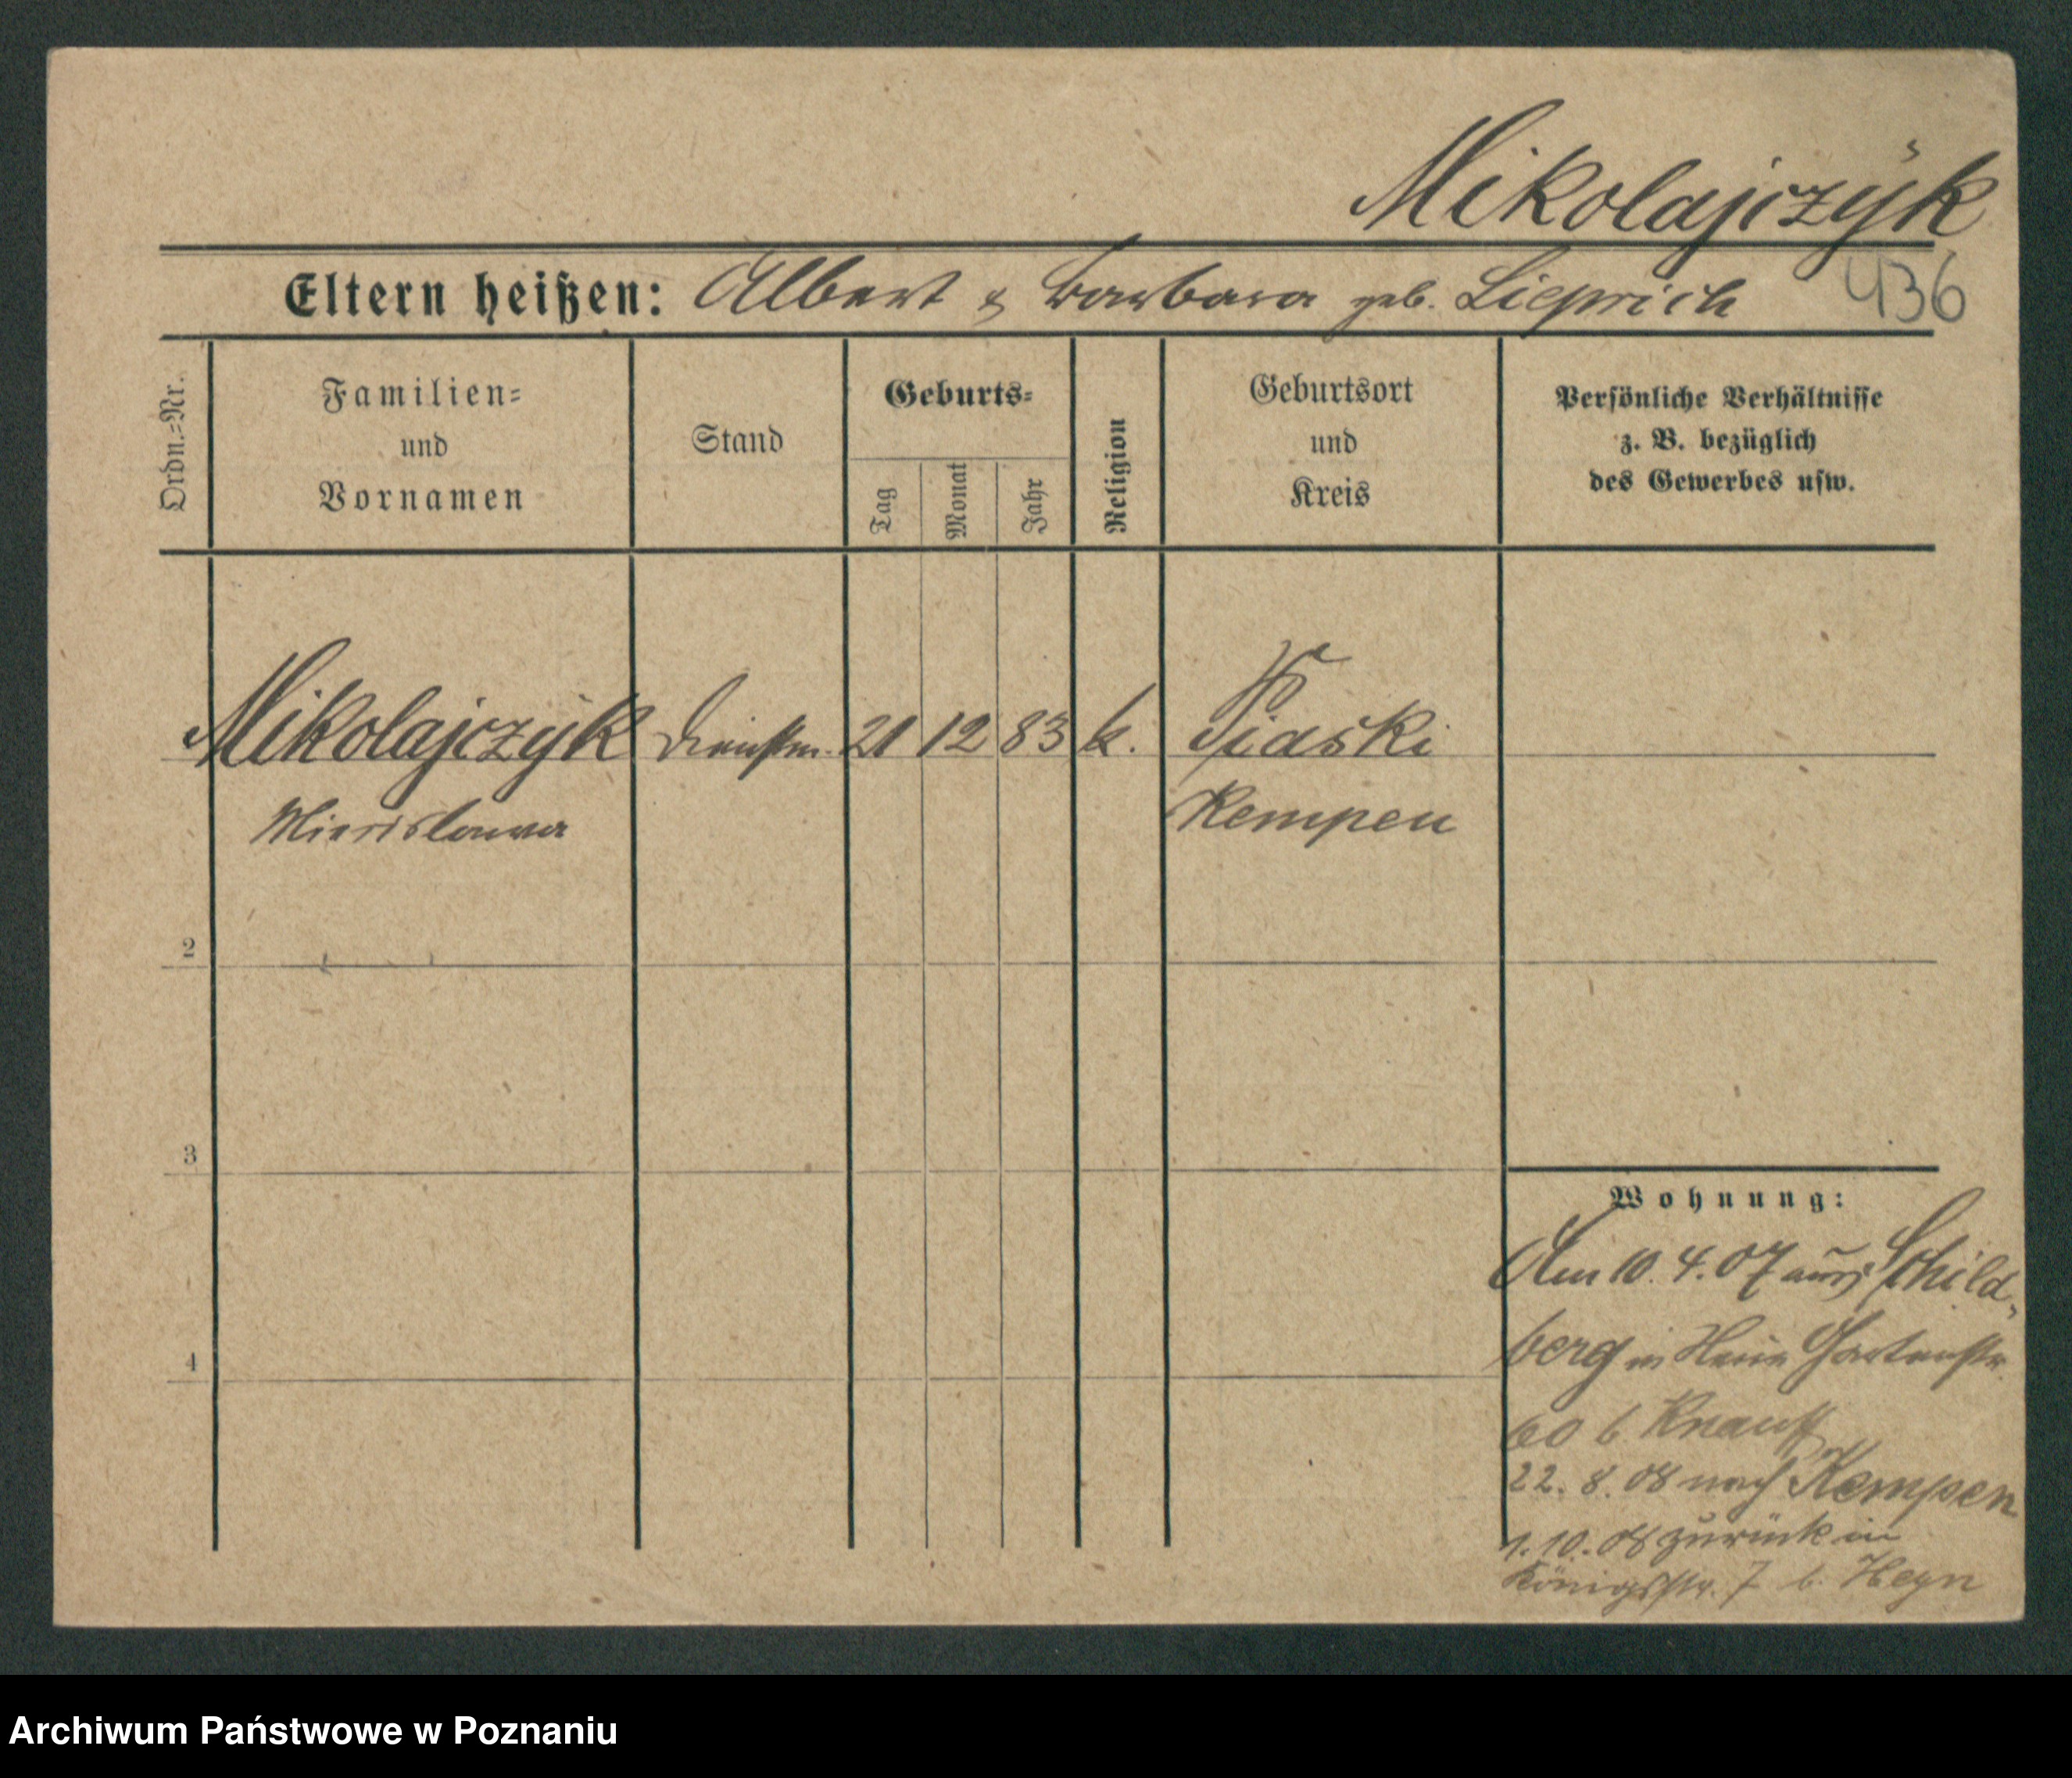 Mikolajczÿk
436
Eltern heißen: Albert & Barbara geb. Lieprich
Ordn.-Nr.
Familien-
und
Vornamen
Stand
Geburts-
Tag
Monat
Jahr
Religion
Geburtsort
und
Kreis
Persönliche Verhältnisse
z. B. bezüglich
des Gewerbes usw.
Mikolajczÿk Dienstm. 21 12 83 k. Piaski
Kempen
2
3
4
Wohnung:
Am 10. 4. 07 aus Schild-
berg in Gartenstr.
60 b. Knauff
22. 8. 08 nach Kempen
1. 10. 08 zurück in
Königsstr. 7 b. Heyn
Archiwum Państwowe w Poznaniu